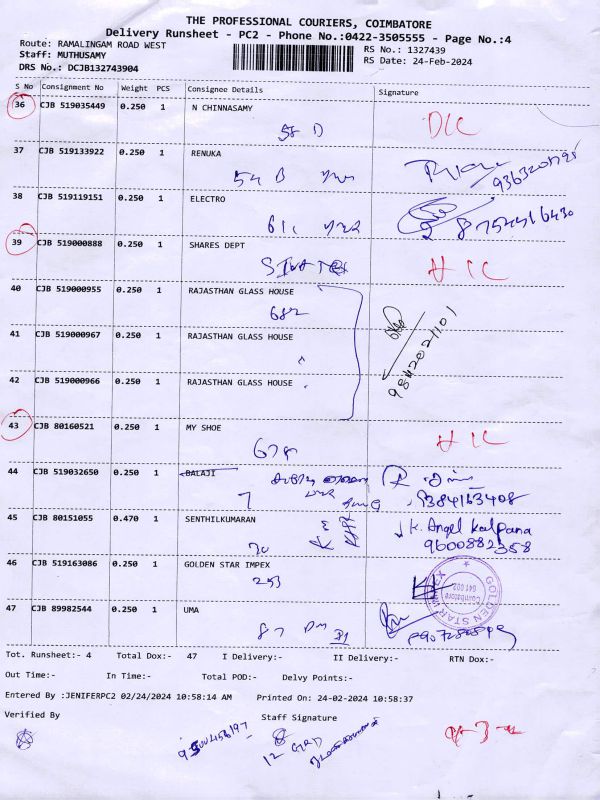 THE PROFESSIONAL COURIERS, COIMBATORE
Delivery Runsheet - PC2 - Phone No.:0422-3505555 - Page No.:4
Route: RAMALINGAM ROAD WEST
RS No.: 1327439
Staff: MUTHUSAMY
RS Date: 24-Feb-2024
DRS No.: DCJB132743904
S No Consignment No Weight PCS Consignee Details Signature
36 CJB 519035449 0.250 1 N CHINNASAMY
58 D
DLC
37 CJB 519133922 0.250 1 RENUKA
54 B
38 CJB 519119151 0.250 1 ELECTRO
61c
39 CJB 519000888 0.250 1 SHARES DEPT
HIC
40 CJB 519000955 0.250 1 RAJASTHAN GLASS HOUSE
682
41 CJB 519000967 0.250 1 RAJASTHAN GLASS HOUSE
9842021101
42 CJB 519000966 0.250 1 RAJASTHAN GLASS HOUSE
43 CJB 80160521 0.250 1 MY SHOE
HIC
44 CJB 519032650 0.250 1 BALAJI
7
9384163408
45 CJB 80151055 0.470 1 SENTHILKUMARAN
K. Angel Kalpana
70
9600882358
46 CJB 519163086 0.250 1 GOLDEN STAR IMPEX
253
GOLDEN STAR IMPEX
Coimbatore
641 002
47 CJB 89982544 0.250 1 UMA
87
Tot. Runsheet:- 4 Total Dox:- 47 I Delivery:- II Delivery:- RTN Dox:-
Out Time:- In Time:- Total POD:- Delvy Points:-
Entered By :JENIFERPC2 02/24/2024 10:58:14 AM Printed On: 24-02-2024 10:58:37
Verified By Staff Signature
12